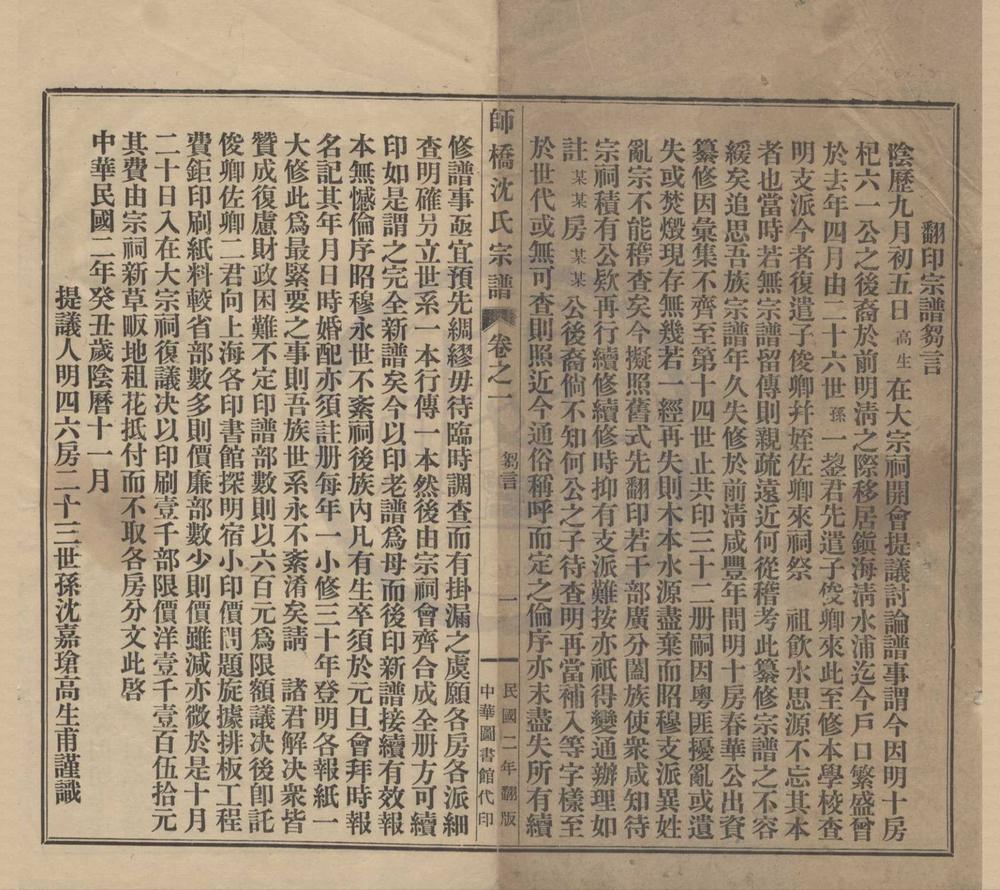 翻印宗譜芻言
陰歷九月初五日高生在大宗祠開會提議討論譜事謂今因明十房
杞六一公之後裔於前明清之際移居鎭海淸水浦迄今戶口繁盛曾
於去年四月由二十六世孫一鋆君先遣子俊卿來此至修本學校查
明支派今者復遣子俊卿幷姪佐卿來祠祭　祖飲水思源不忘其本
者也當時若無宗譜留傳則親疏遠近何從稽考此纂修宗譜之不容
緩矣追思吾族宗譜年久失修於前淸咸豐年間明十房春華公出資
纂修因彙集不齊至第十四世止共印三十二册嗣因粵匪擾亂或遺
失或焚燬現存無幾若一經再失則木本水源盡棄而昭穆支派異姓
亂宗不能稽查矣今擬照舊式先翻印若干部廣分闔族使衆咸知待
宗祠積有公欵再行續修續修時抑有支派難按亦祇得變通辦理如
註某某房某某公後裔倘不知何公之子待查明再當補入等字樣至
於世代或無可查則照近今通俗稱呼而定之倫序亦未盡失所有續
師橋沈氏宗譜
卷之一
芻言
一
民國二年翻版
中華圖書館代印
修譜事亟宜預先綢繆毋待臨時調查而有掛漏之虞願各房各派細
查明確另立世系一本行傳一本然後由宗祠會齊合成全册方可續
印如是謂之完全新譜矣今以印老譜爲母而後印新譜接續有效報
本無憾倫序昭穆永世不紊祠後族內凡有生卒須於元旦會拜時報
名記其年月日時婚配亦須註册每年一小修三十年登明各報紙一
大修此爲最緊要之事則吾族世系永不紊淆矣請　諸君解決衆皆
贊成復慮財政困難不定印譜部數則以六百元爲限額議決後卽託
俊卿佐卿二君向上海各印書館探明宿小印價問題旋據排板工程
費鉅印刷紙料較省部數多則價廉部數少則價雖減亦微於是十月
二十日入在大宗祠復議決以印刷壹千部限價洋壹千壹百伍拾元
其費由宗祠新草畈地租花抵付而不取各房分文此啓
中華民國二年癸丑歲陰曆十一月
提議人明四六房二十三世孫沈嘉瑲高生甫謹識